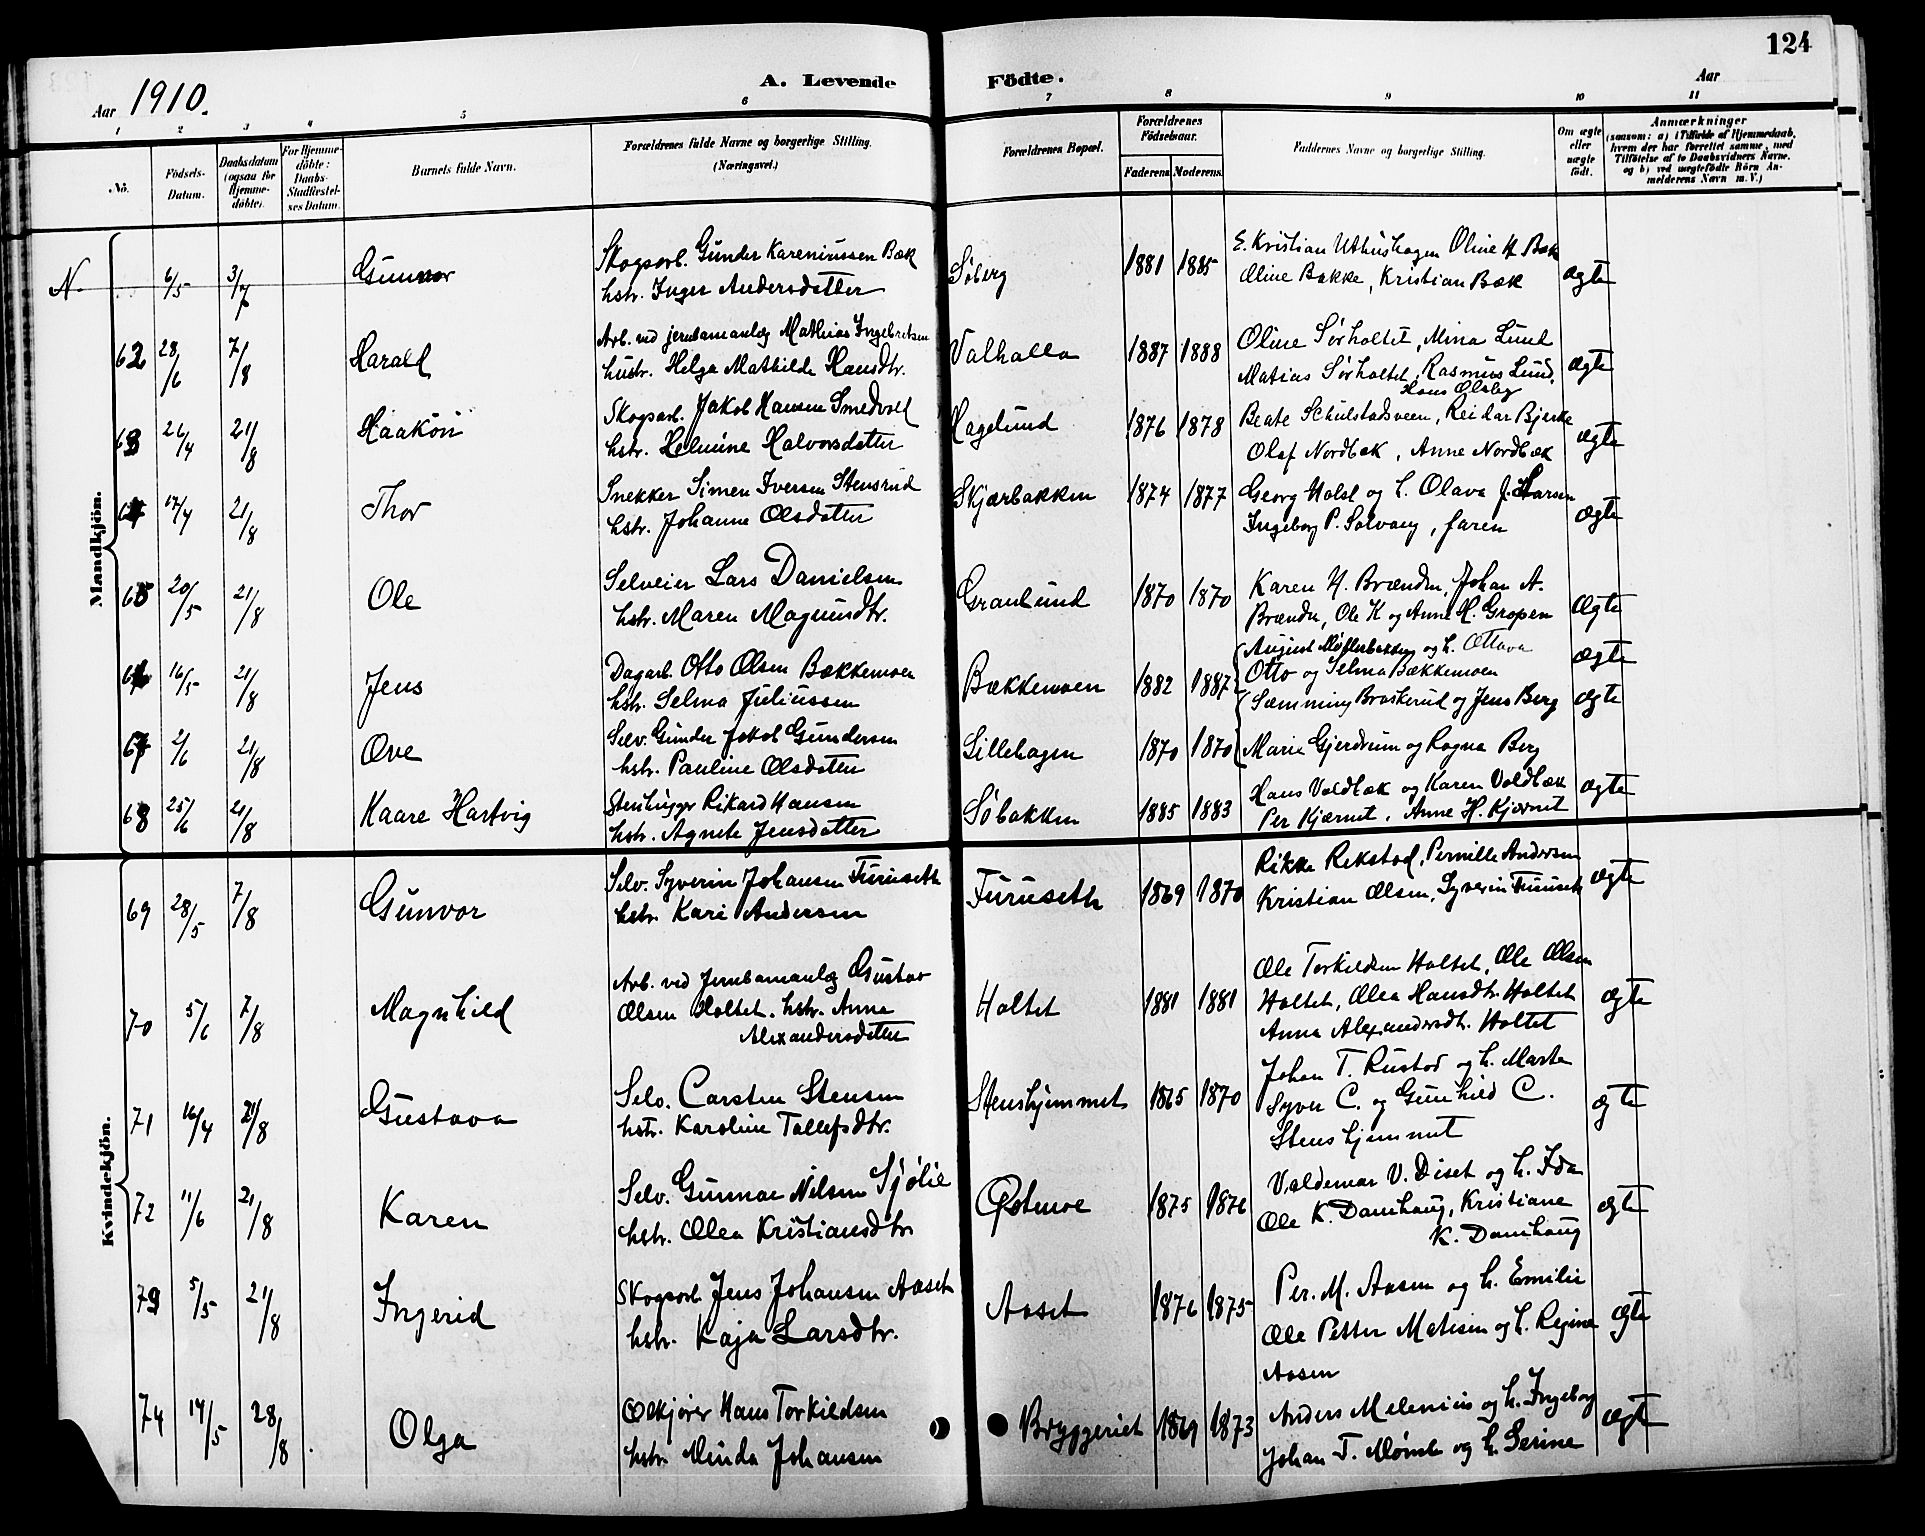 124
Aar 1910.
A. Levende Födte.
Aar
1 2 3 4 5 6 7 8 9 10 11
No.
Födsels-Datum.
Daabsdatum (ogsaa for Hjemme-döbte).
For Hjemme-döbte: Daabs-Stadfæstel-ses Datum.
Barnets fulde Navn.
Forældrenes fulde Navne og borgerlige Stilling. (Næringsvei.)
Forældrenes Bopæl.
Forældrenes Födselsaar.
Faderens. Moderens.
Faddernes Navne og borgerlige Stilling.
Om ægte eller uægte födt.
Anmærkninger
(saasom: a) i Tilfælde af Hjemmedaab,
hvem der har forrettet samme, med
Tilföielse af to Daabsvidners Navne,
og b) ved uægtefödte Börn An-
melderens Navn m. V.)
Mandkjön.
N. 6/5 3/7 Gunvor
Skogsarb. Gunder Kareniussen Bæk
hstr. Inger Andersdatter
Søberg 1881 1885
E. Kristian Uthushagen Oline H. Bæk
Oline Bakke, Kristian Bæk
ægte
62 28/6 7/8 Harald
Arb. ved jernbaneanlæg Mathias Ingebretsen
hustr. Helga Mathilde Hansdtr.
Valhalla 1887 1888
Oline Sørholtet, Mina Lund
Matias Sørholtet, Rasmus Lund,
Hans Olsby
ægte
63 26/4 21/8 Haakon
Skogsarb. Jakob Hansen Smedvold
hstr. Helmine Halvorsdatter
Hagelund 1876 1878
Beate Schulstadsveen, Reidar Bjerke
Olaf Nordbæk, Anne Nordbæk
ægte
64 17/4 21/8 Thor
Snekker Simen Iversen Stensrud
hstr. Johanne Olsdatter
Skjærbakken 1874 1877
Georg Holst og h. Olava J. Larsen
Ingeborg P. Solvang, faren
ægte
65 20/5 21/8 Ole
Selveier Lars Danielsen
hstr. Maren Magnusdtr.
Granlund 1870 1870
Karen H. Brænden, Johan A.
Brænden, Ole K og Anne H. Gropen
ægte
66 16/5 21/8 Jens
Dagarb. Otto Olsen Bækkemoen
hstr. Selma Juliussen
Bækkemoen 1882 1887
August Møllerbakken og h. Ottava
Otto og Selma Bækkemoen
Sæmming Braskerud og Jens Berg
ægte
67 2/6 21/8 Ove
Selv. Gunder Jakob Gundersen
hstr. Pauline Olsdatter
Lillehagen 1870 1870
Marie Gjerdrum og Ragna Berg
ægte
68 25/6 21/8 Kaare Hartvig
Stenhugger Rikard Hansen
hstr. Agnete Jensdatter
Søbakken 1885 1883
Hans Voldbæk og Karen Voldbæk
Per Kjærnet, Anne H. Kjærnet
ægte
Kvindekjön.
69 28/5 7/8 Gunvor
Selv. Syverin Johansen Furuseth
hstr. Kari Andersen
Furuseth 1869 1870
Rikke Rekstad, Pernille Andersen
Kristian Olsen, Syverin Furuseth
ægte
70 5/6 7/8 Magnhild
Arb. ved Jernbaneanlæg Gustav
Olsen Holtet. hstr. Anna
Alexandersdatter
Holtet 1881 1881
Ole Torkildsen Holtet, Ole Olsen
Holtet, Olea Hansdtr. Holtet
Anna Alexandersdtr. Holtet
ægte
71 16/4 21/8 Gustava
Selv. Carsten Stensen
hstr. Karoline Tollefsdtr.
Stenshjemmet 1865 1870
Johan T. Rustad og h. Marte
Syver C. og Gunhild C.
Stenshjemmet
ægte
72 11/6 21/8 Karen
Selv. Gunnar Nilsen Sjølie
hstr. Olea Kristiansdtr.
Østmoe 1875 1876
Valdemar V. Diset og h. Ida
Ole K. Damhaug, Kristiane
K. Damhaug
ægte
73 5/5 21/8 Ingerid
Skogsarb Jens Johansen Aaset
hstr. Kaja Larsdtr.
Aaset 1876 1875
Per. M. Aasen og h. Emilie
Ole Petter Matisen og h. Regine
Aasen
ægte
74 14/5 28/8 Olga
Ølkjører Hans Torkildsen
hstr. Minda Johansen
Bryggeriet 1869 1873
Anders Melenius og h. Ingeborg
Johan T. Mømb og h. Serine
ægte